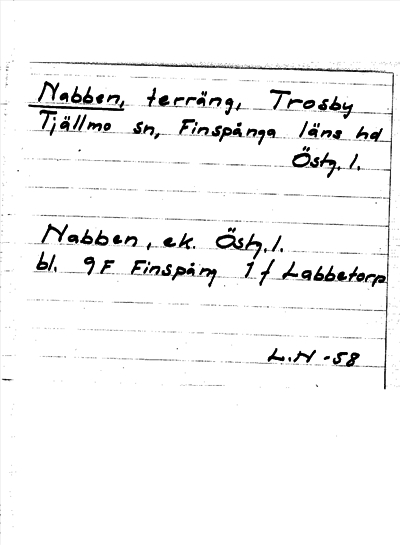 Nabben, terräng, Trosby
Tjällmo sn, Finspånga läns hd
Östg. l.
Nabben, ek. Östg. l.
bl. 9F Finspång 1 f Labbetorp
L.H -58